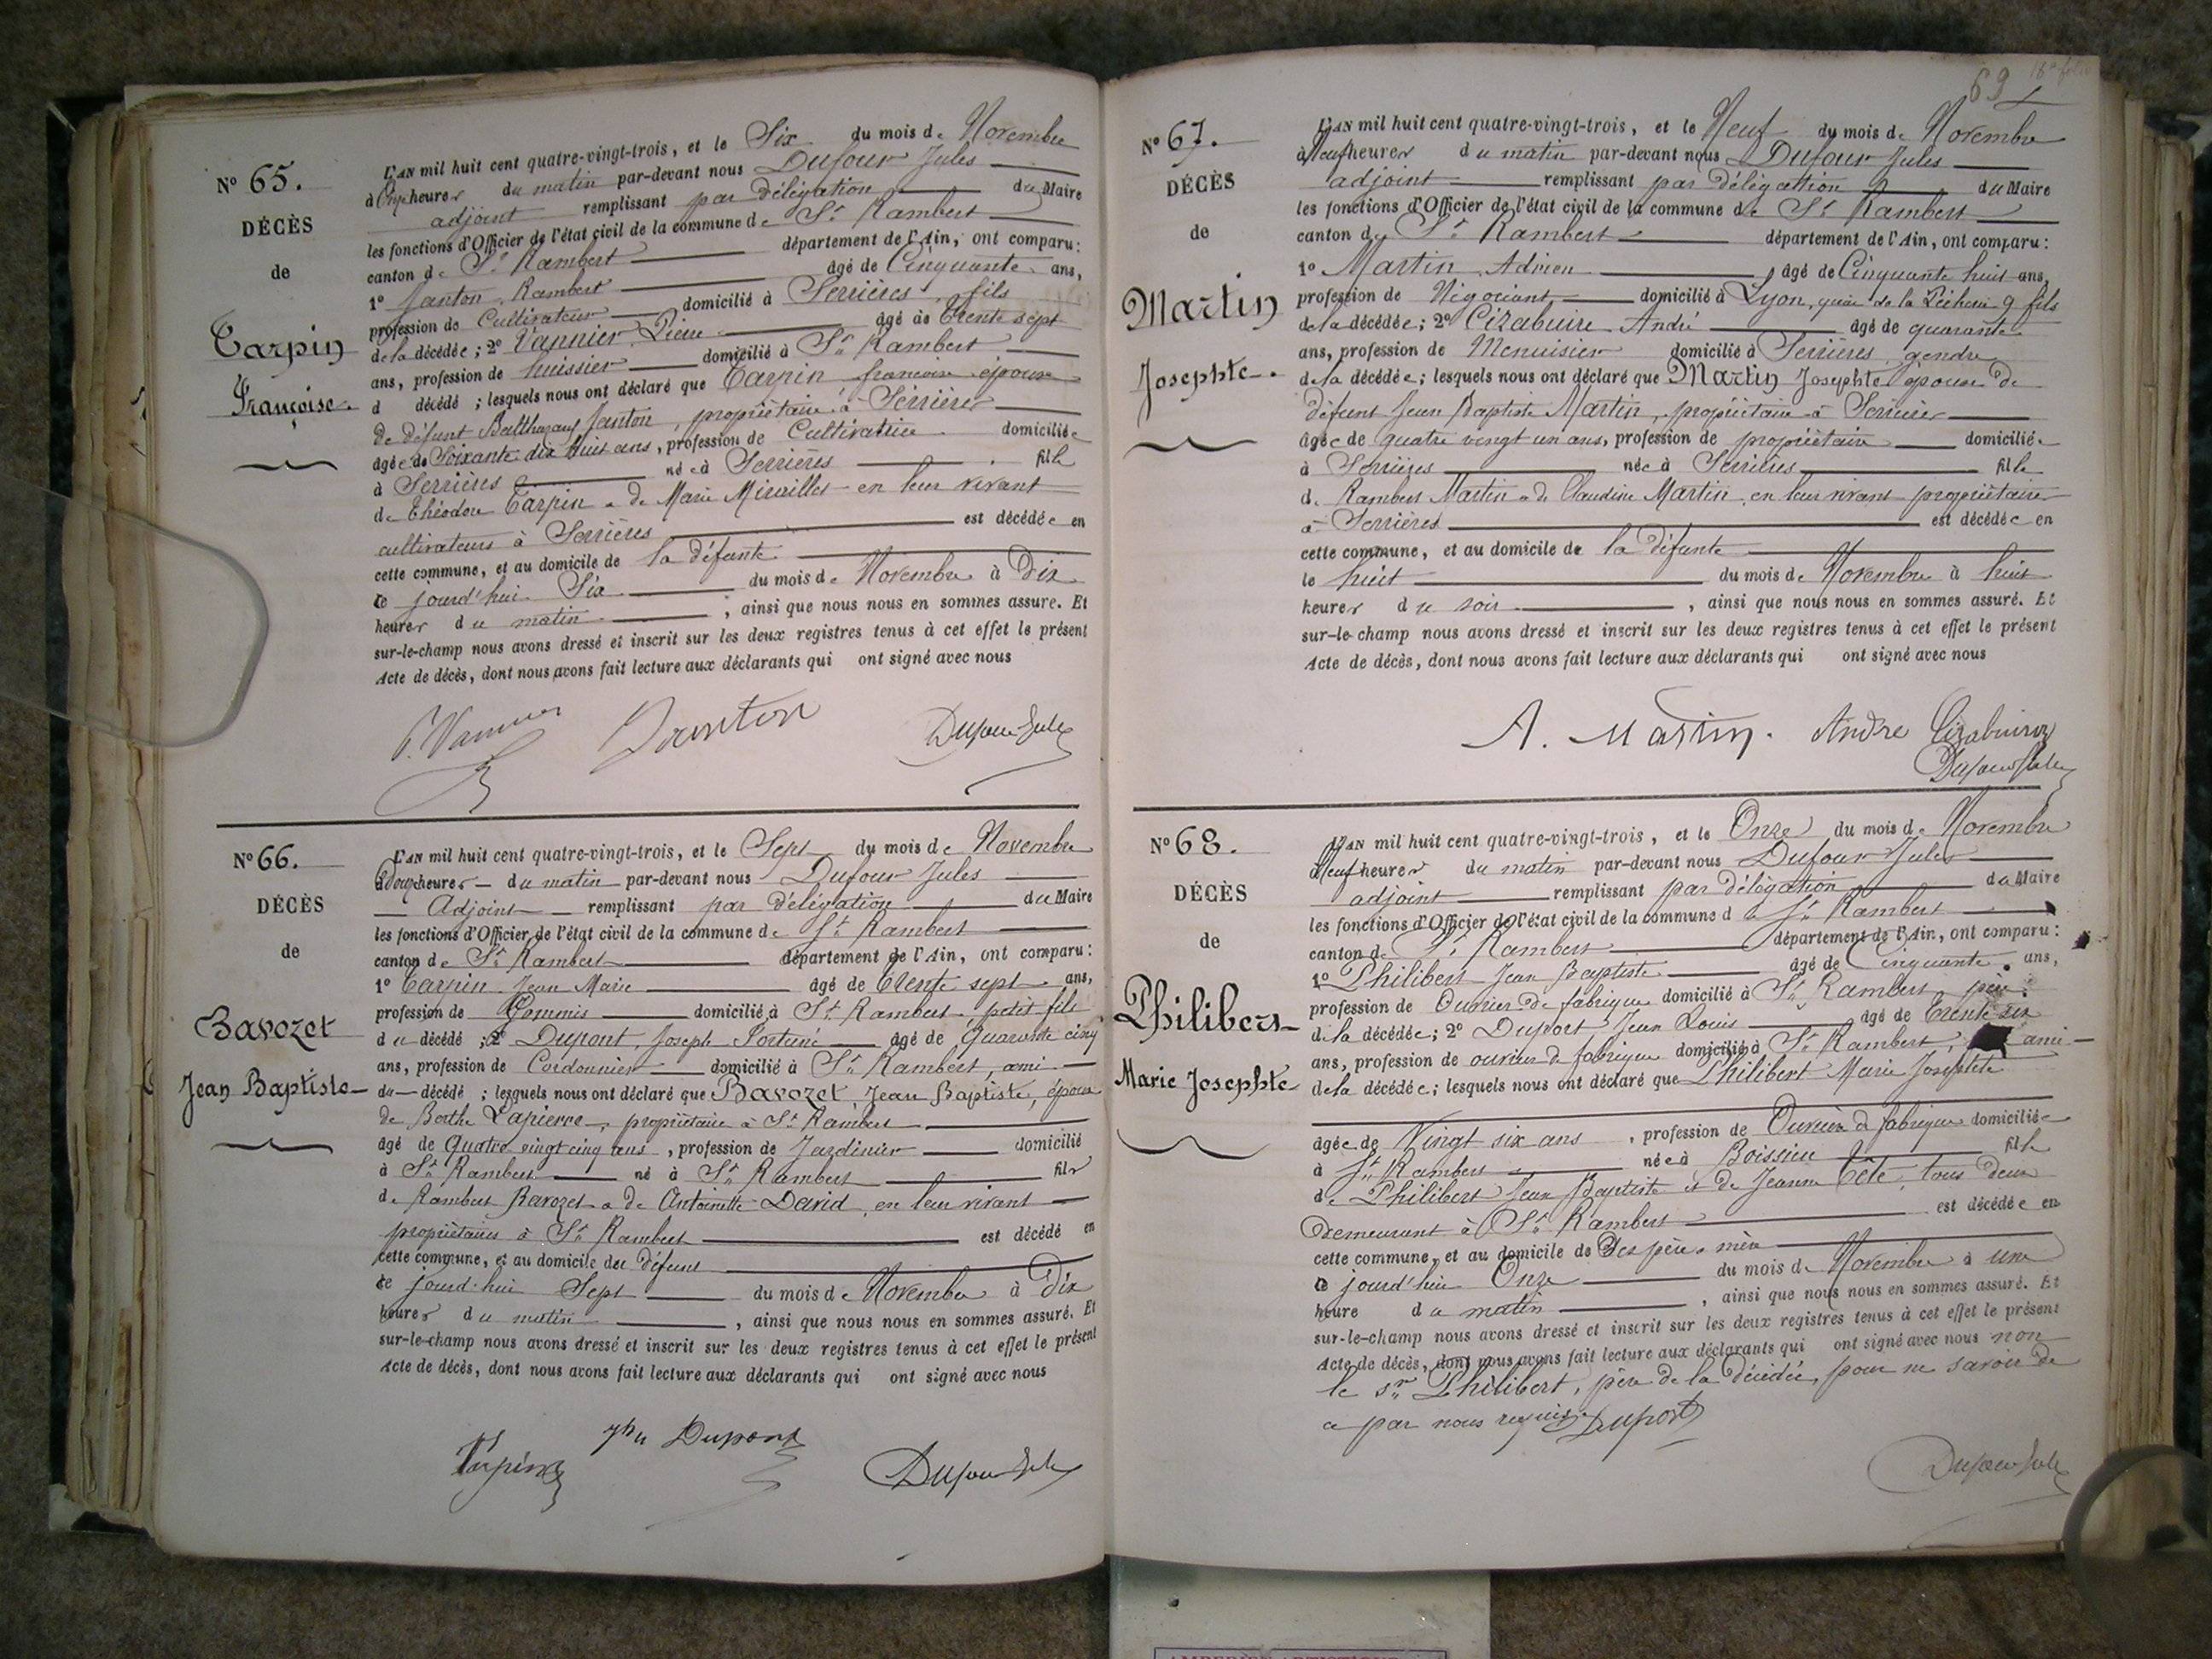 N° 65.
DÉCÈS
de
Tarpin
Françoise.
L'AN mil huit cent quatre-vingt-trois, et le Six du mois de Novembre
à Onze heures du matin par-devant nous Dufour Jules
adjoint remplissant par délégation du Maire
les fonctions d'Officier de l'état civil de la commune de St Rambert
canton de St Rambert département de l'Ain, ont comparu:
1° Janton, Rambert âgé de Cinquante ans,
profession de Cultivateur domicilié à Serrières, fils
de la décédée; 2° Vannier Pierre âgé de trente sept
ans, profession de huissier domicilié à St Rambert
d décédé ; lesquels nous ont déclaré que Tarpin françoise épouse
de défunt Balthazard Janton, propriétaire à Serrières
âgée de Soixante dix huit ans, profession de Cultivatrice domiciliée
à Serrières née à Serrières fille
de Théodore Tarpin & de Marie Miraillet en leur vivant
cultivateurs à Serrières est décédée en
cette commune, et au domicile de la défunte
ce jourd'hui Six du mois de Novembre à Dix
heures du matin ; ainsi que nous nous en sommes assuré. Et
sur-le-champ nous avons dressé et inscrit sur les deux registres tenus à cet effet le présent
Acte de décès, dont nous avons fait lecture aux déclarants qui ont signé avec nous
P. Vannier Janton Dufour Jules
N° 66.
DÉCÈS
de
Bavozet
Jean Baptiste
L'AN mil huit cent quatre-vingt-trois, et le Sept du mois de Novembre
à Douze heures du matin par-devant nous Dufour Jules
Adjoint remplissant par délégation du Maire
les fonctions d'Officier de l'état civil de la commune de St Rambert
canton de St Rambert département de l'Ain, ont comparu:
1° Tarpin Jean Marie âgé de Trente sept ans,
profession de Commis domicilié à St Rambert petit fils
du décédé ; 2° Dupont, Joseph Fortuné âgé de Quarante cinq
ans, profession de Cordonnier domicilié à St Rambert, ami
du décédé ; lesquels nous ont déclaré que Bavozet, Jean Baptiste, époux
de Berthe Lapierre, propriétaire à St Rambert
âgé de Quatre vingt cinq ans, profession de Jardinier domicilié
à St Rambert né à St Rambert fils
de Rambert Bavozet & de Antoinette David, en leur vivant
propriétaires à St Rambert est décédé en
cette commune, et au domicile du défunt
ce jourd'hui Sept du mois de Novembre à Dix
heures du matin , ainsi que nous nous en sommes assuré. Et
sur-le-champ nous avons dressé et inscrit sur les deux registres tenus à cet effet le présent
Acte de décès, dont nous avons fait lecture aux déclarants qui ont signé avec nous
Tarpin Dupont Dufour Jules
69
N° 67.
DÉCÈS
de
Martin
Josephte.
L'AN mil huit cent quatre-vingt-trois, et le Neuf du mois de Novembre
à Neuf heures du matin par-devant nous Dufour Jules
adjoint remplissant par délégation du Maire
les fonctions d'Officier de l'état civil de la commune de St Rambert
canton de St Rambert département de l'Ain, ont comparu:
1° Martin, Adrien âgé de Cinquante huit ans,
profession de Négociant domicilié à Lyon, quai de la Pêcherie 9 fils
de la décédée; 2° Cizabuire André âgé de quarante
ans, profession de Menuisier domicilié à Serrières, gendre
de la décédée; lesquels nous ont déclaré que Martin Josephte épouse de
défunt Jean Baptiste Martin, propriétaire à Serrières
âgée de quatre vingt un ans, profession de propriétaire domiciliée
à Serrières née à Serrières fille
de Rambert Martin & de Claudine Martin, en leur vivant propriétaires
à Serrières est décédée en
cette commune, et au domicile de la défunte
le huit du mois de Novembre à huit
heures du soir , ainsi que nous nous en sommes assuré. Et
sur-le-champ nous avons dressé et inscrit sur les deux registres tenus à cet effet le présent
Acte de décès, dont nous avons fait lecture aux déclarants qui ont signé avec nous
A. Martin. André Cizabuire
Dufour Jules
N° 68.
DÉCÈS
de
Philibert
Marie Josephte
L'AN mil huit cent quatre-vingt-trois, et le Onze du mois de Novembre
à Neuf heures du matin par-devant nous Dufour Jules
adjoint remplissant par délégation du Maire
les fonctions d'Officier de l'état civil de la commune de St Rambert
canton de St Rambert département de l'Ain, ont comparu:
1° Philibert Jean Baptiste âgé de Cinquante ans,
profession de Ouvrier de fabrique domicilié à St Rambert père
de la décédée; 2° Duport Jean Louis âgé de Trente six
ans, profession de ouvrier de fabrique domicilié à St Rambert, ami
de la décédée; lesquels nous ont déclaré que Philibert Marie Josephte
âgée de Vingt six ans, profession de Ouvrière de fabrique domiciliée
à St Rambert née à Boissieu fille
de Philibert Jean Baptiste et de Jeanne Tête, tous deux
demeurant à St Rambert est décédée en
cette commune, et au domicile de Ses père & mère
ce jourd'hui Onze du mois de Novembre à une
heure du matin , ainsi que nous nous en sommes assuré. Et
sur-le-champ nous avons dressé et inscrit sur les deux registres tenus à cet effet le présent
Acte de décès, dont nous avons fait lecture aux déclarants qui ont signé avec nous non
le sr Philibert, père de la décédée, pour ne savoir de
ce par nous requis. Duport
Dufour Jules